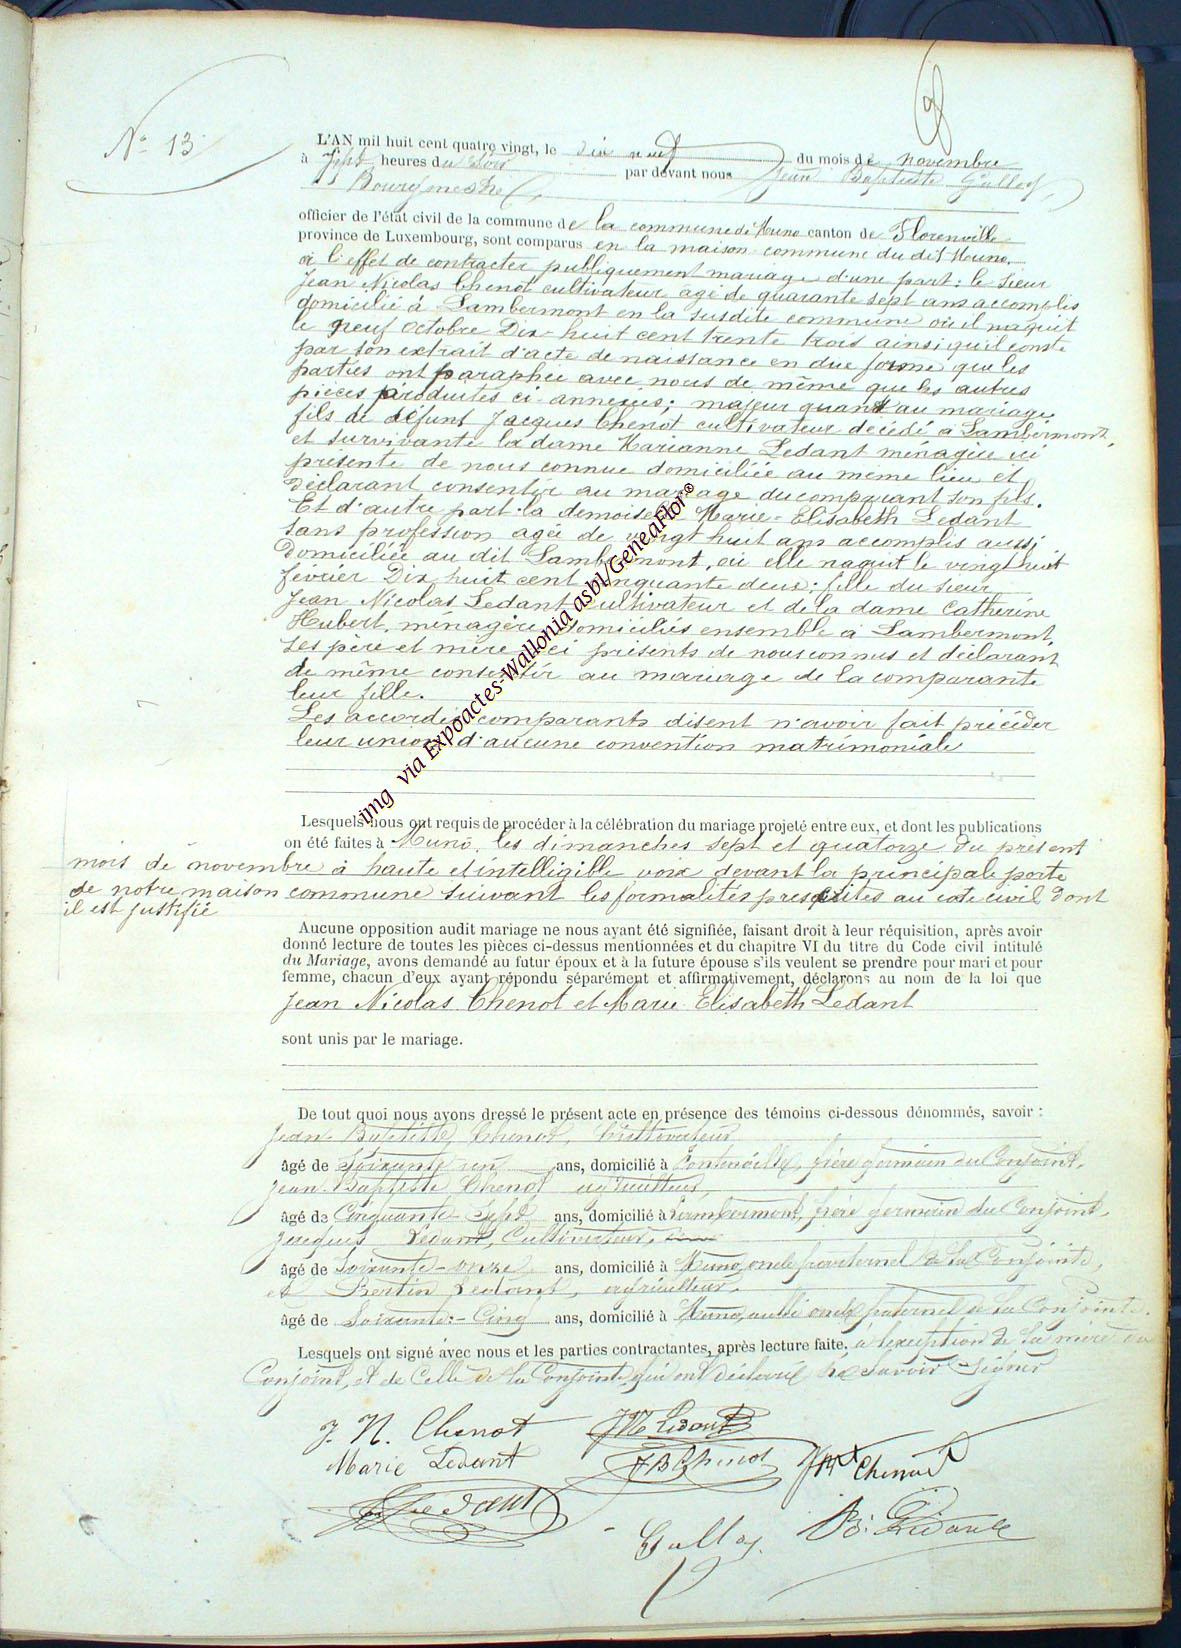 N° 13
L'AN mil huit cent quatre vingt, le dix neuf du mois de novembre
à sept heures du soir par devant nous Jean Baptiste Gulloy,
Bourgmestre
officier de l'état civil de la commune de la commune de Muno canton de Florenville
province de Luxembourg, sont comparus en la maison commune du dit Muno,
à l'effet de contracter publiquement mariage d'une part : le sieur
Jean Nicolas Chenot cultivateur agé de quarante sept ans accomplis
domicilié à Lambermont en la susdite commune où il naquit
le neuf octobre Dix-huit cent trente trois ainsi qu'il conste
par son extrait d'acte de naissance en due forme que les
parties ont paraphée avec nous de même que les autres
pièces produites ci-annexées; majeur quant au mariage
fils de défunt Jacques Chenot cultivateur décédé à Lambermont,
et survivante la dame Marianne Ledant ménagère ici
présente de nous connue domiciliée au même lieu et
déclarant consentir au mariage du comparant son fils.
Et d'autre part la demoiselle Marie-Elisabeth Ledant
sans profession agée de vingt huit ans accomplis aussi
domiciliée au dit Lambermont, où elle naquit le vingt huit
février Dix huit cent cinquante deux; fille du sieur
Jean Nicolas Ledant cultivateur et de la dame Catherine
Hubert, ménagère domiciliés ensemble à Lambermont,
ses père et mère ici présents de nous connus et déclarant
de même consentir au mariage de la comparante
leur fille.
Les accordés comparants disent n'avoir fait précéder
leur union d'aucune convention matrimoniale
img via Expoactes-Wallonia asbl/GeneaFlor®
Lesquels nous ont requis de procéder à la célébration du mariage projeté entre eux, et dont les publications
on été faites à Muno, les dimanches sept et quatorze du présent
mois de novembre à haute et intelligible voix devant la principale porte
de notre maison commune suivant les formalités prescrites au code civil dont
il est justifié
Aucune opposition audit mariage ne nous ayant été signifiée, faisant droit à leur réquisition, après avoir
donné lecture de toutes les pièces ci-dessus mentionnées et du chapitre VI du titre du Code civil intitulé
du Mariage, avons demandé au futur époux et à la future épouse s'ils veulent se prendre pour mari et pour
femme, chacun d'eux ayant répondu séparément et affirmativement, déclarons au nom de la loi que
Jean Nicolas Chenot et Marie Elisabeth Ledant
sont unis par le mariage.
De tout quoi nous avons dressé le présent acte en présence des témoins ci-dessous dénommés, savoir :
Jean Baptiste Chenot, Cultivateur
âgé de Soixante un ans, domicilié à Fontenoille, frère germain du Conjoint,
Jean-Baptiste Chenot agriculteur,
âgé de Cinquante-Sept ans, domicilié à Lambermont, frère germain du Conjoint,
Jacques Ledant, Cultivateur,
âgé de Soixante-onze ans, domicilié à Muno, oncle paternel de la Conjointe,
et Bertin Ledant, agriculteur,
âgé de Soixante-Cinq ans, domicilié à Muno, aussi oncle paternel de la Conjointe.
Lesquels ont signé avec nous et les parties contractantes, après lecture faite, à l'exception de la mère du
Conjoint, et de Celle de la Conjointe qui ont déclaré ne savoir signer
J. N. Chenot JN Ledant
Marie Ledant JB Chenot JBt Chenot
J. Ledant
Gulloy. B. Ledant